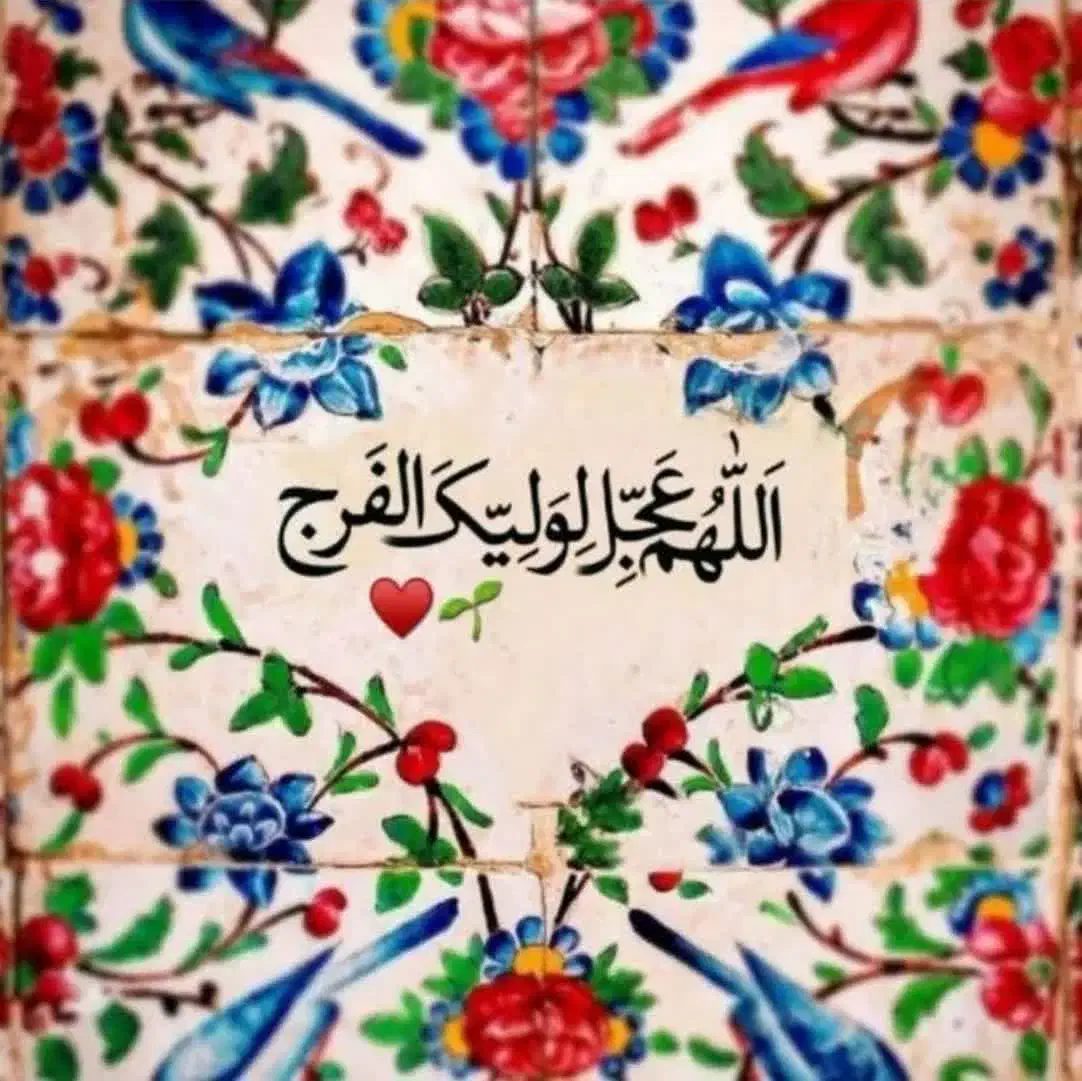 اَللّٰهُمَّ عَجِّل لِوَلِیِّکَ الفَرَج
❤️🌱